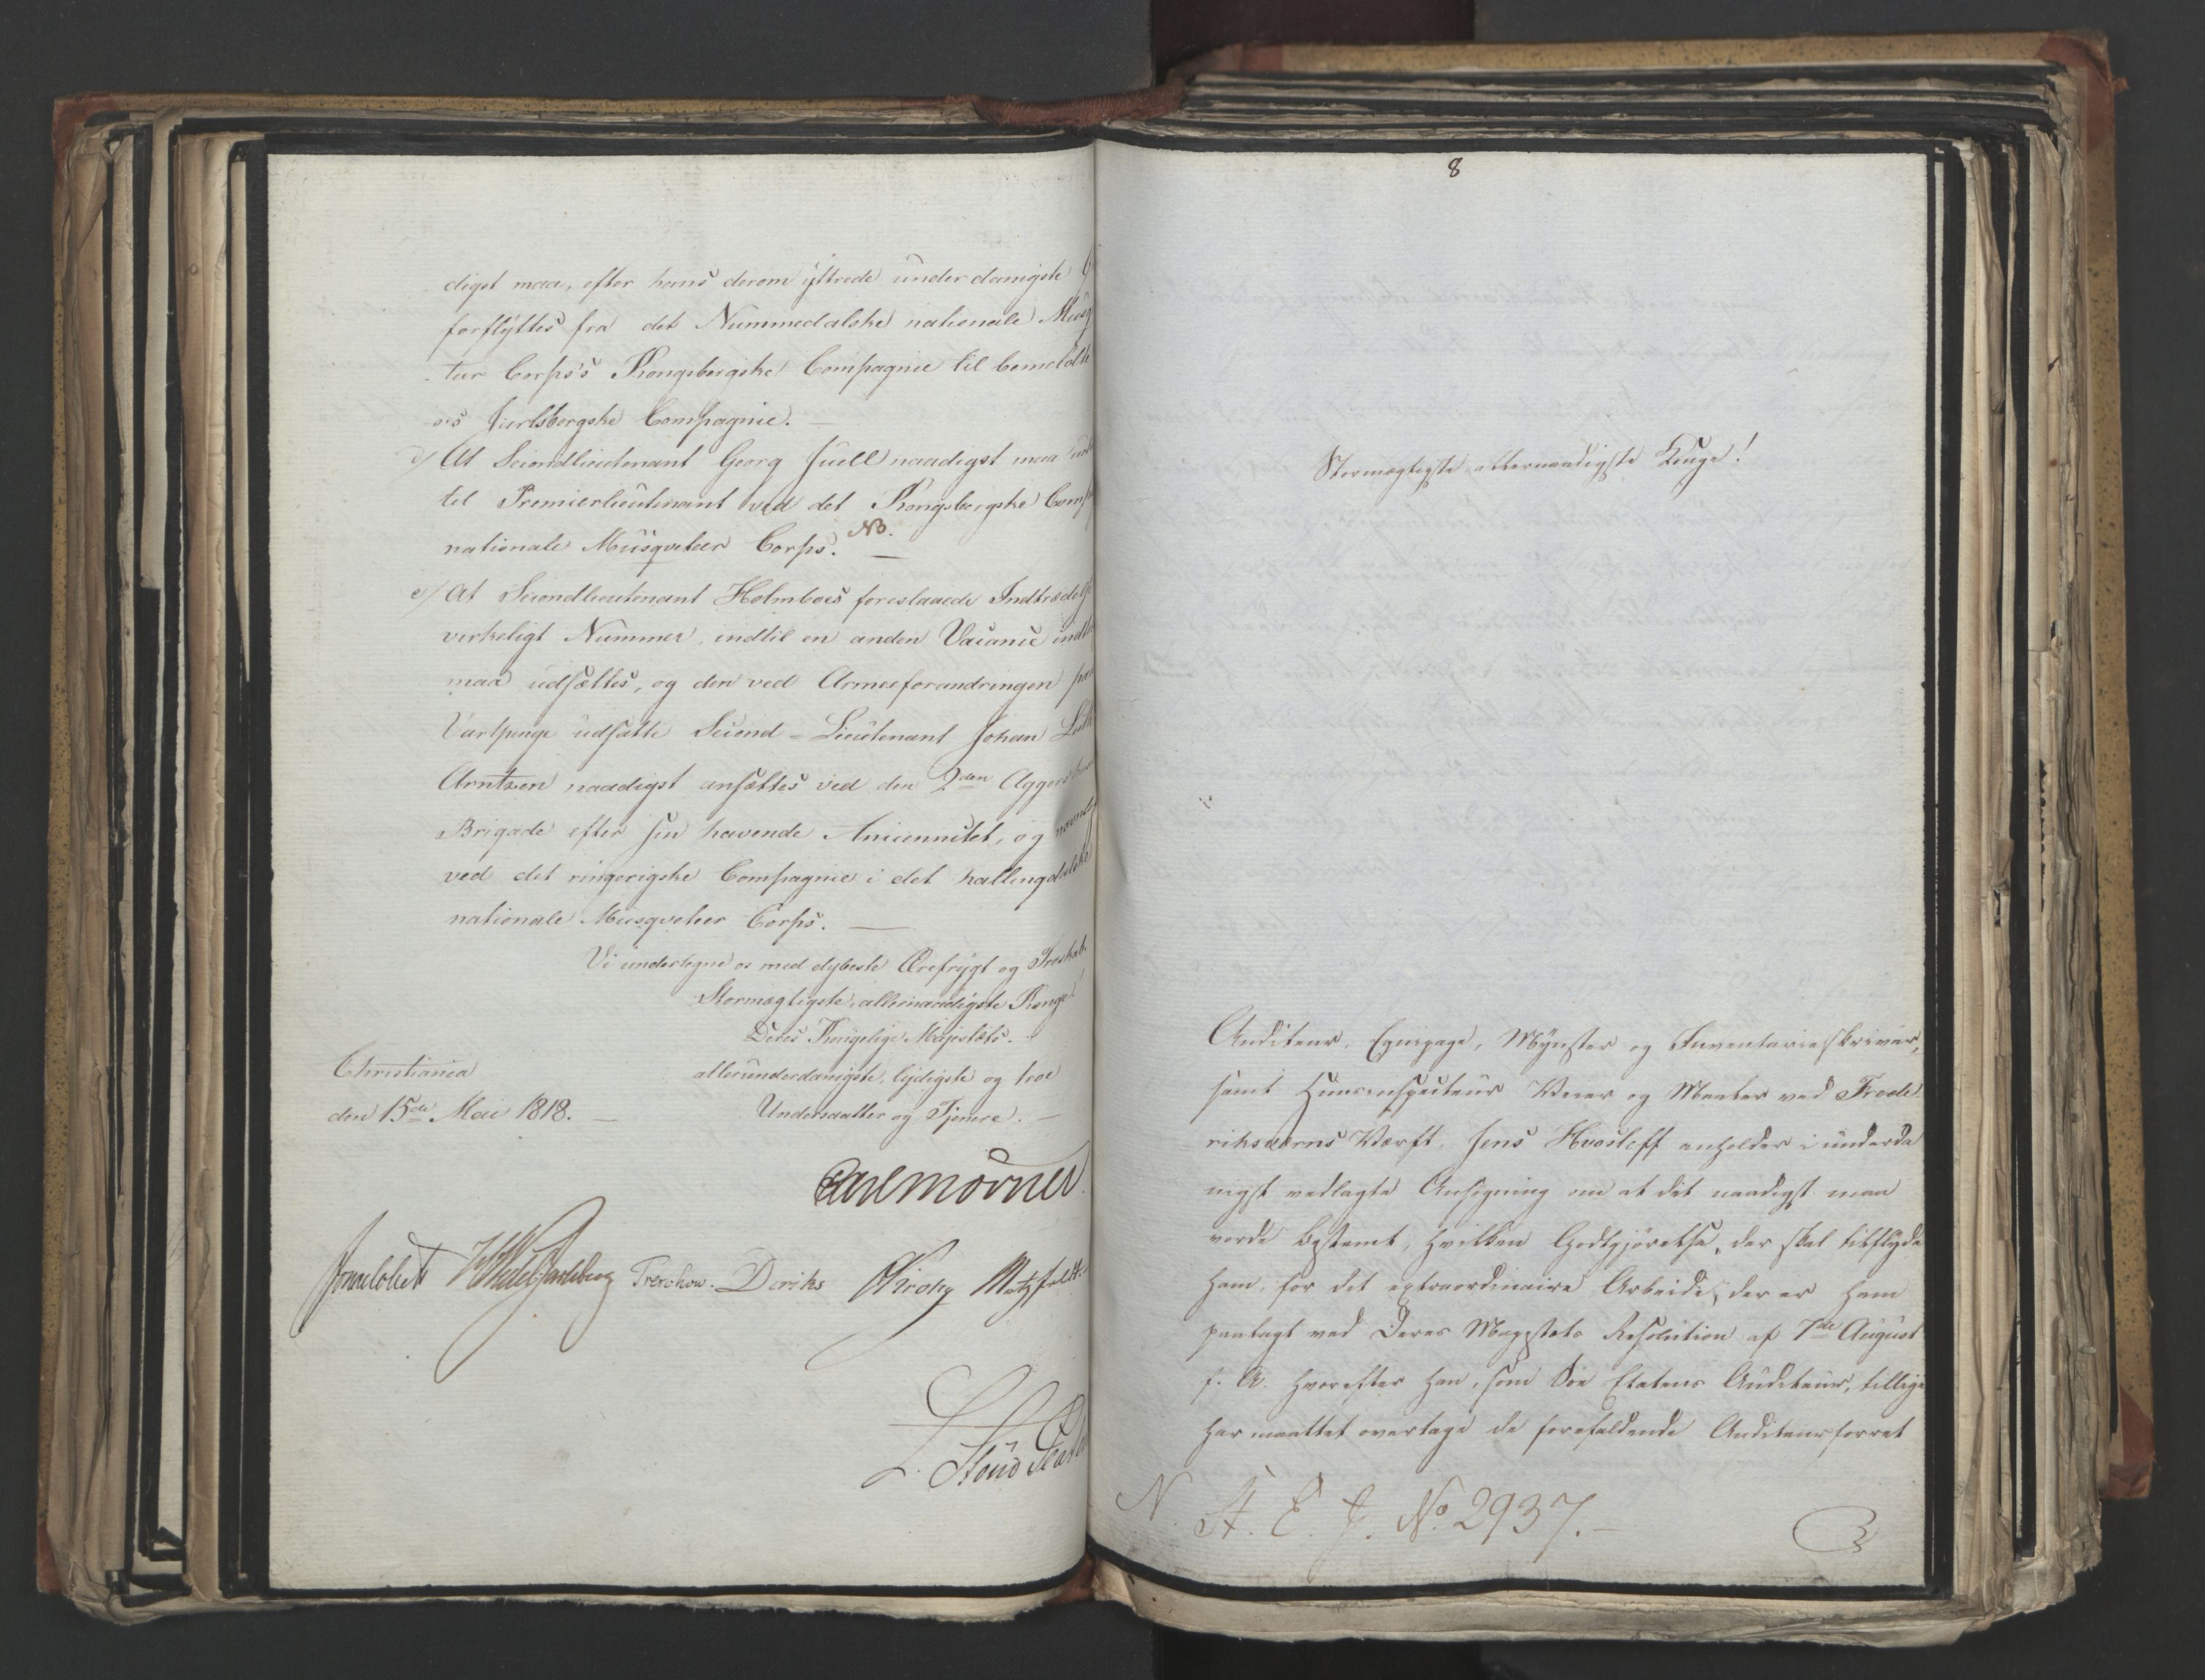 digst maa, efter hans derom yttrede underdanigste
forflyttes fra det Nummedalske nationale Musq
teer Corps's Kongsbergske Compagnie til bemeldte
Jarlsbergske Compagnie. —
d/ At Secondlieutenant Georg Juell naadigst maa
til Premierlieutenant ved det Kongsbergske Comp
nationale Musqveteer Corps. NB. —
e/ At Secondlieutenant Holmboes foreslaaede Indtrædelse
virkeligt Nummer, indtil en anden Vacance
maa udsættes, og den ved Armeeforandringen paa
Vartpenge udsatte Second-Lieutenant Johan
Arntzen naadigst ansættes ved den 2den Aggershuus
Brigade efter sin havende Anciennitet, og
ved det ringerigske Compagnie i det hallingdalske
nationale Musqveteer Corps. —
Vi undertegne os med dybeste Ærefrygt og Troskab.
Stormægtigste, allernaadigste Konge!
Deres Kongelige Majestæts.
Christiania
allerunderdanigste, lydigste og troe
den 15de Mai 1818. —
Undersaatter og Tjenere. —
Carl Mörner
Sommelhielm H Wedel Jarlsberg Treschow. Diriks Krog Motzfeldt
L. Stoud Plat
8
Stormægtigste allernaadigste Konge!
Auditeur, Eqvipage, Mynster og Inventarieskriver,
samt Huusinspecteur Veier og Maaler ved Frede
riksværns Værft, Jens Hvosleff anholder i underda
nigst vedlagte Ansøgning om at det naadigst maa
vorde bestemt, hvilken Godtgjørelse, der skal tilflyde
ham, for det extraordinaire Arbeide, der er ham
paalagt ved Deres Majestæts Resolution af 7de August
f. A. hvorefter han, som Søe Etatens Auditeur, tillige
har maattet overtage de forefaldende Auditeurforret
N. A. E. J. No. 2937. —